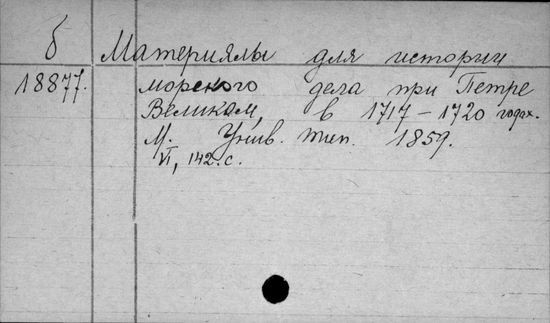 б Материялы для истории
18877. морского дела при Петре
Великом, в 1717–1720 годах.
М. Унив. тип. 1859.
VI, 142. с.